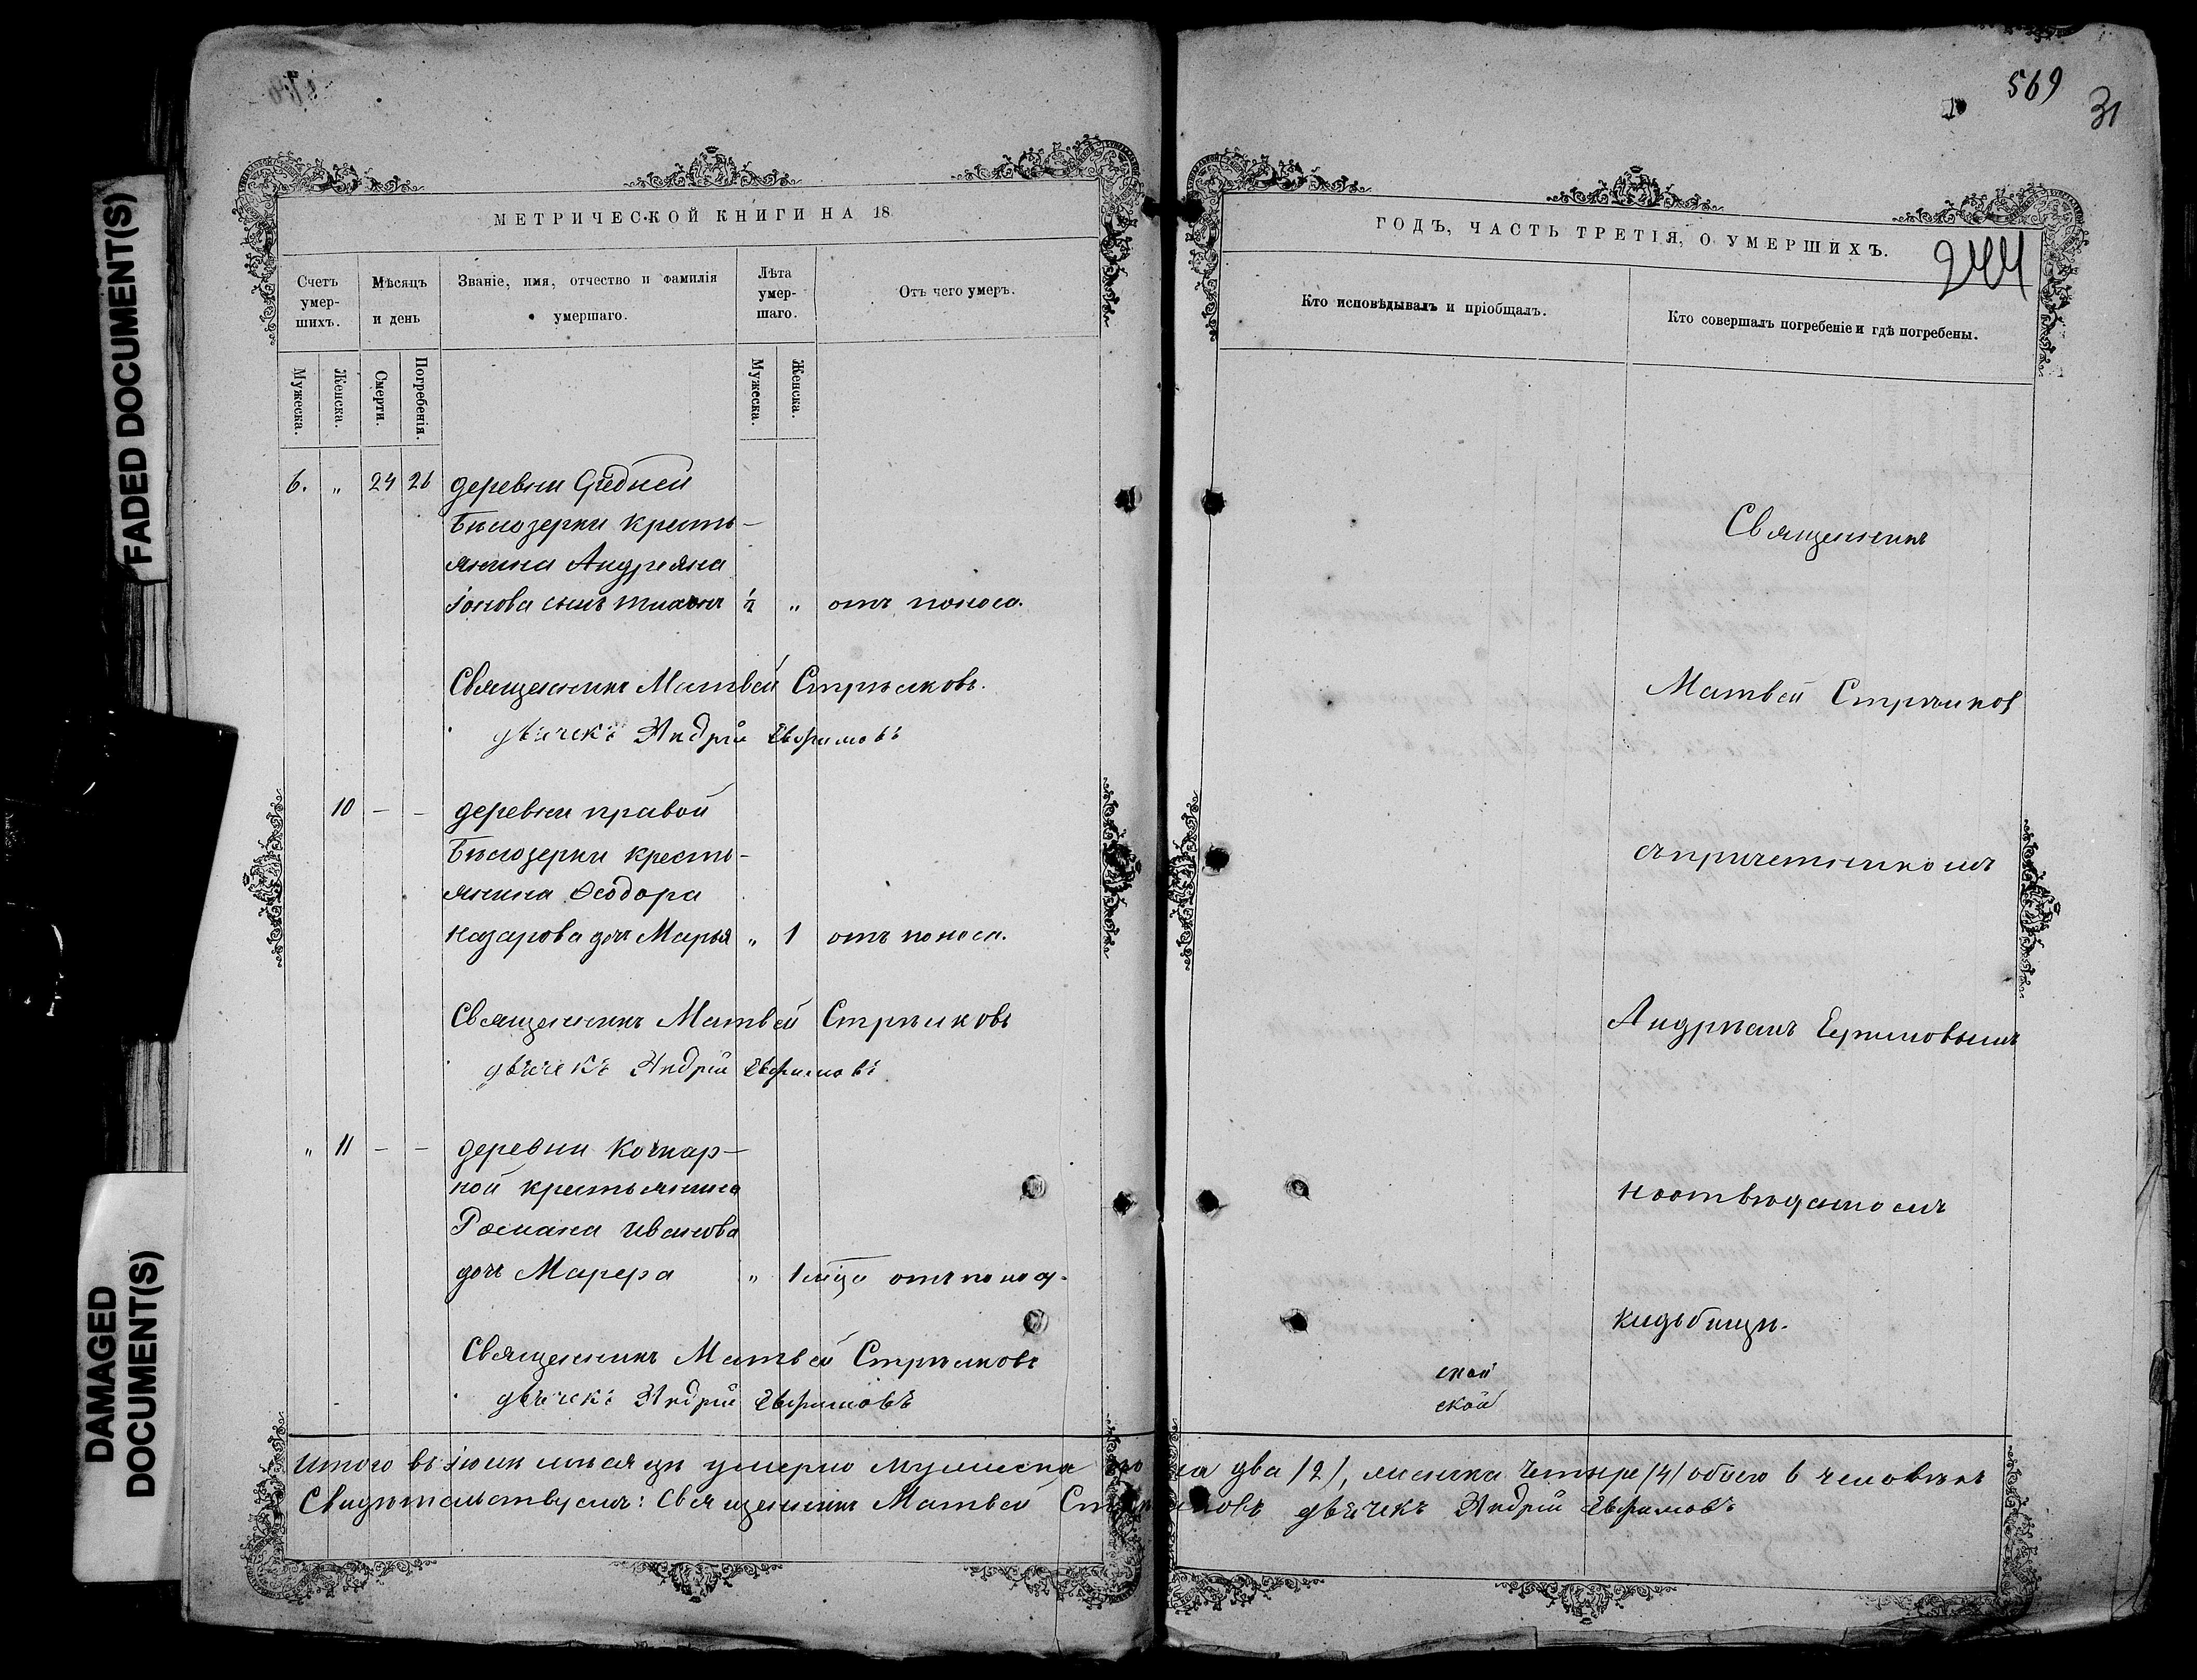 569
31
МЕТРИЧЕСКОЙ КНИГИ НА 18
ГОДЪ, ЧАСТЬ ТРЕТІЯ, О УМЕРШИХЪ.
244
Счетъ умершихъ.
Мѣсяцъ и день
Званіе, имя, отчество и фамилія умершаго.
Лѣта умершаго.
Отъ чего умеръ.
Кто исповѣдывалъ и пріобщалъ.
Кто совершалъ погребеніе и гдѣ погребены.
Мужеска.
Женска.
Смерти.
Погребенія.
Мужеска.
Женска.
6. „ 24 26 деревни Средней
Бѣлозерки кресть-
янина Андреяна
Іонова сынъ Тихонъ ½ „ отъ поноса.
Священникъ Матвей Стрѣлковъ.
дьячекъ Андрій Евфимовъ
10 - - деревни правой
Бѣлозерки кресть-
янина Ѳеодора
Назарова дочь Марья „ 1 отъ поноса.
Священникъ Матвей Стрѣлковъ
дьячекъ Андрій Евфимовъ
„ 11 - - деревни Кочкар-
ной крестьянина
Романа Иванова
дочь „ 1 отъ поноса.
Священникъ Матвей Стрѣлковъ
дьячекъ Андрій Евфимовъ
Священникъ
Матвей Стрѣлков
съ причетникомъ
Андрѣемъ Ефимовымъ
на отведенномъ
кладбищѣ.
ской
ской
Итого въ іюнѣ мѣсяцѣ умерло мужеска пола два /2/, женска четыре /4/ обоего 6 человѣкъ
Свидѣтельствуемъ: Священникъ Матвей Стрѣлковъ дьячекъ Андрій Евфимовъ
DAMAGED DOCUMENT(S)
FADED DOCUMENT(S)